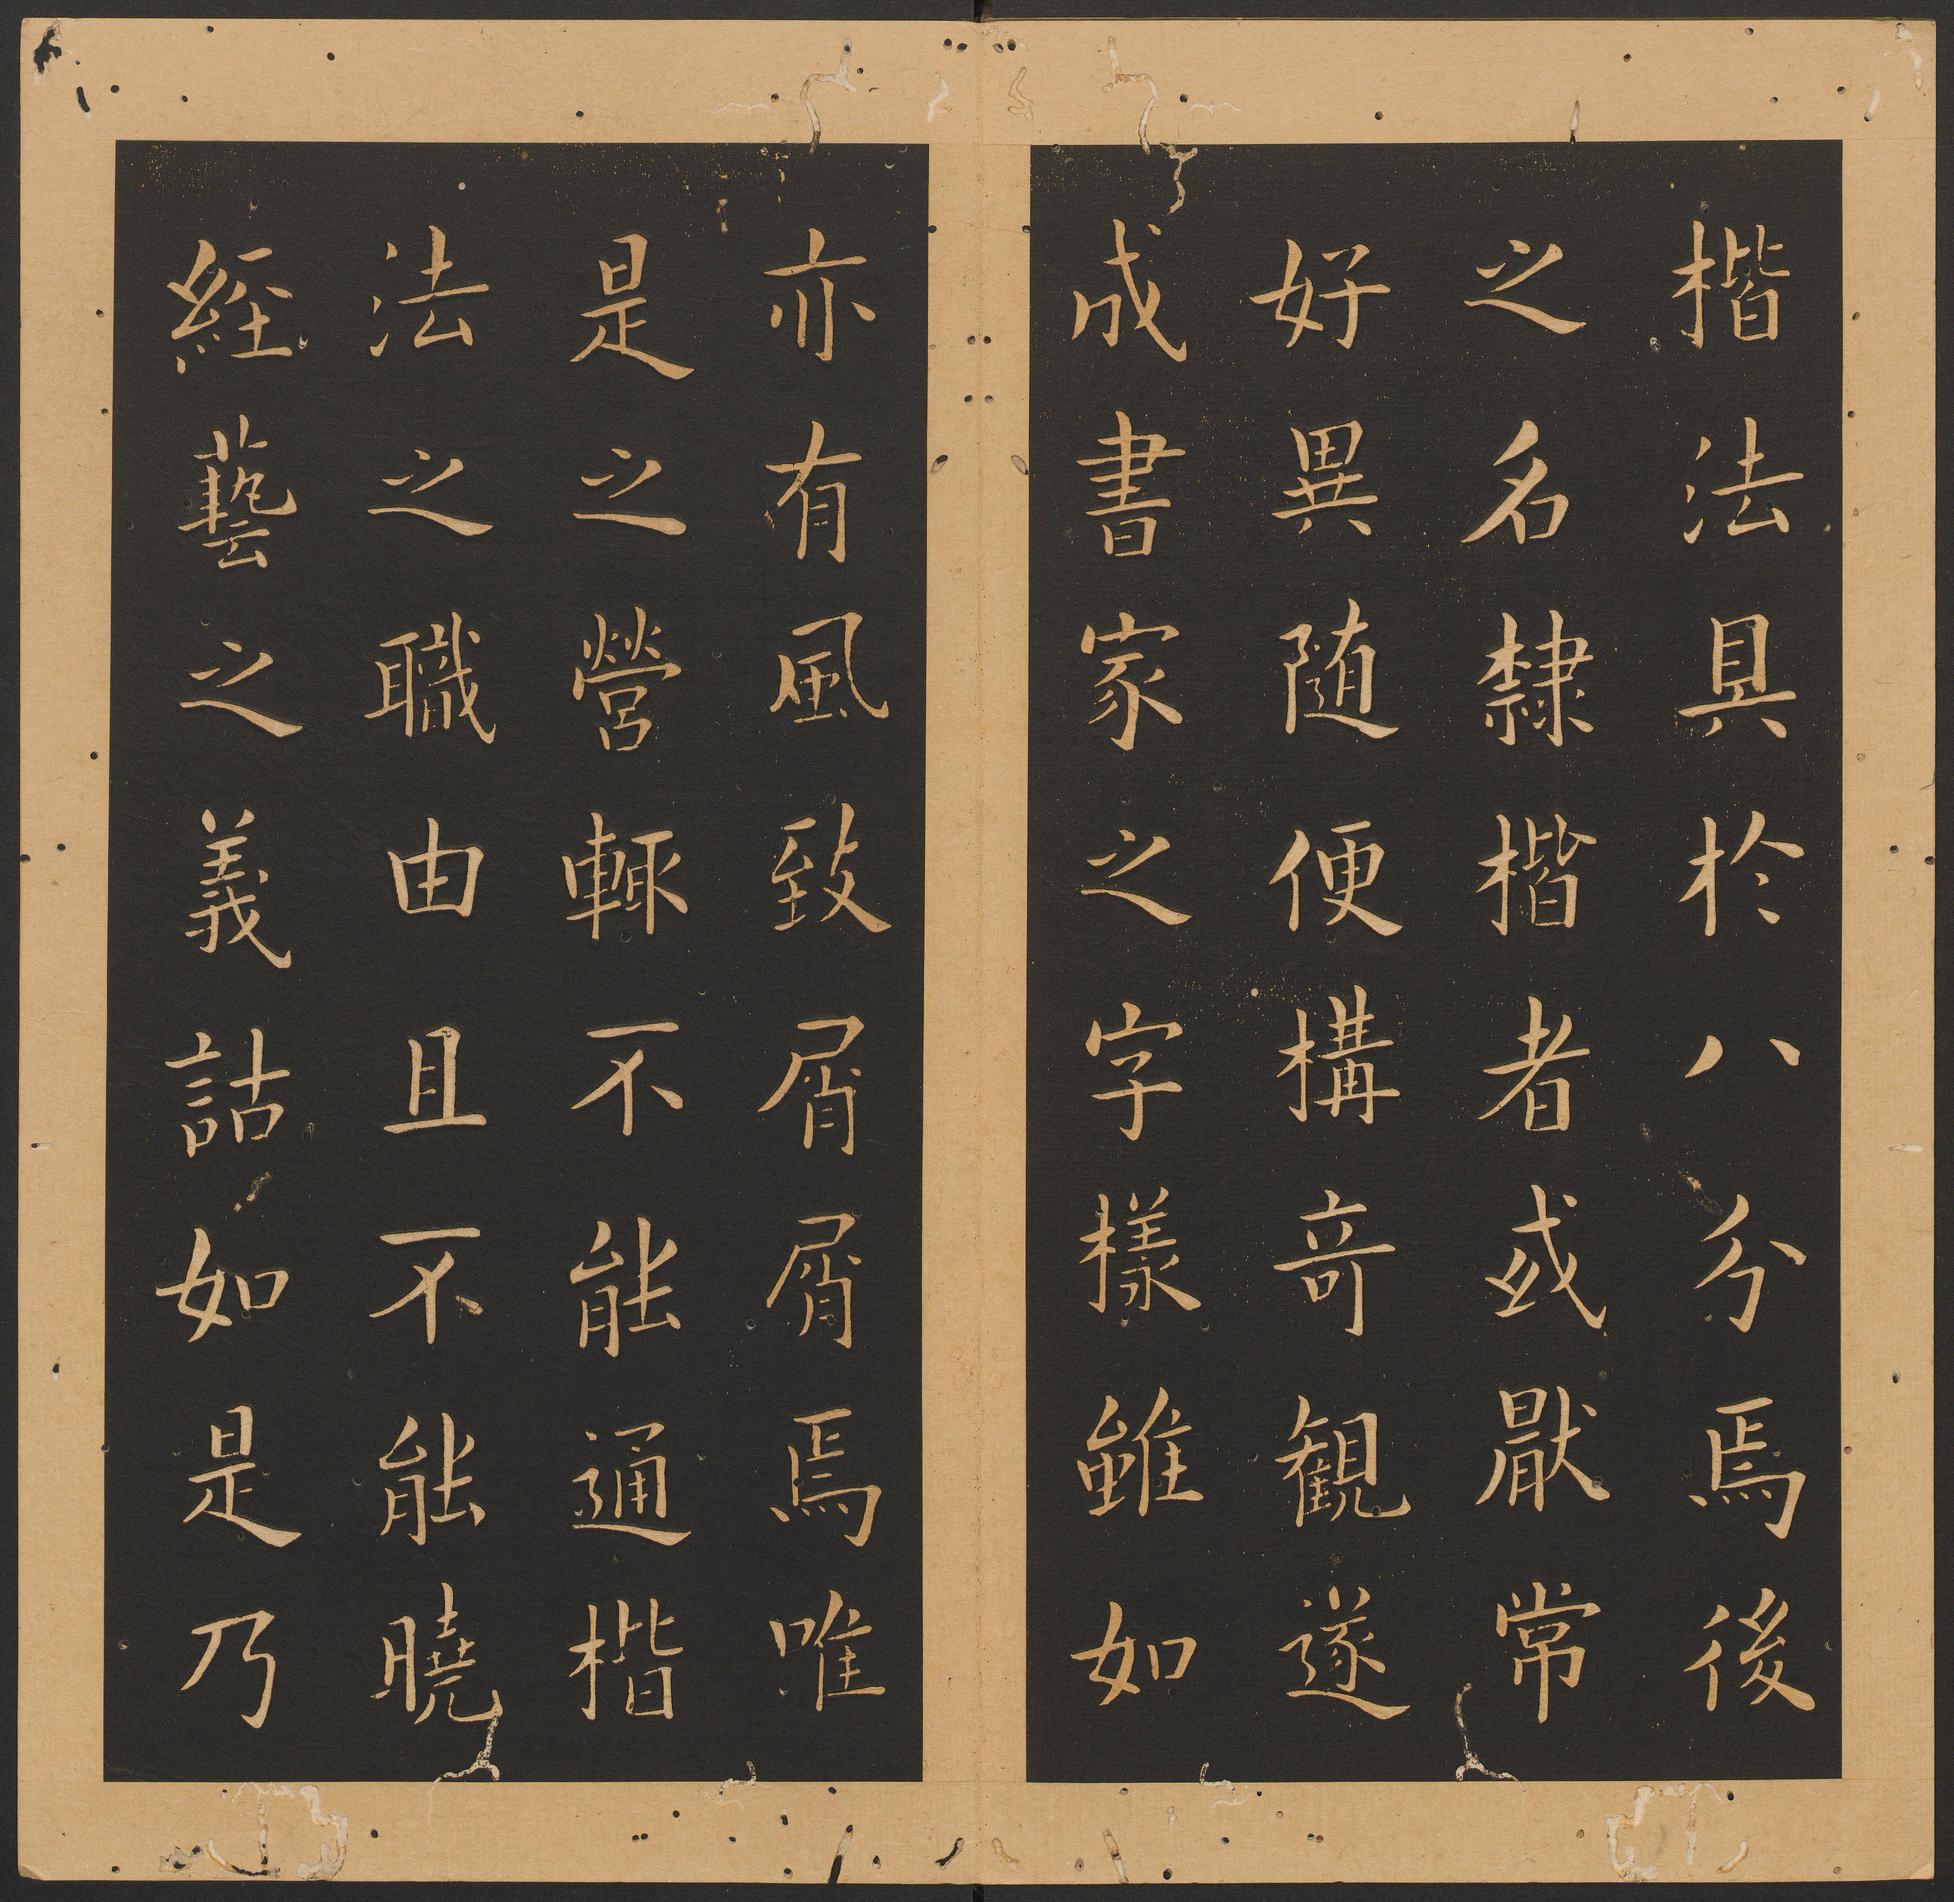 楷法具於八分焉後
之名隸楷者或厭常
好異随便構竒観遂
成書家之字樣雖如
亦有風致屑屑焉唯
是之營輙不能通楷
法之職由且不能曉
經藝之義詁如是乃